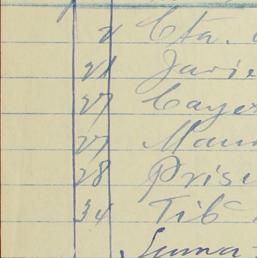 2 Cta.
21 Javie
27 Caye
27 Mau
28 Prise
34 Tib
Suma